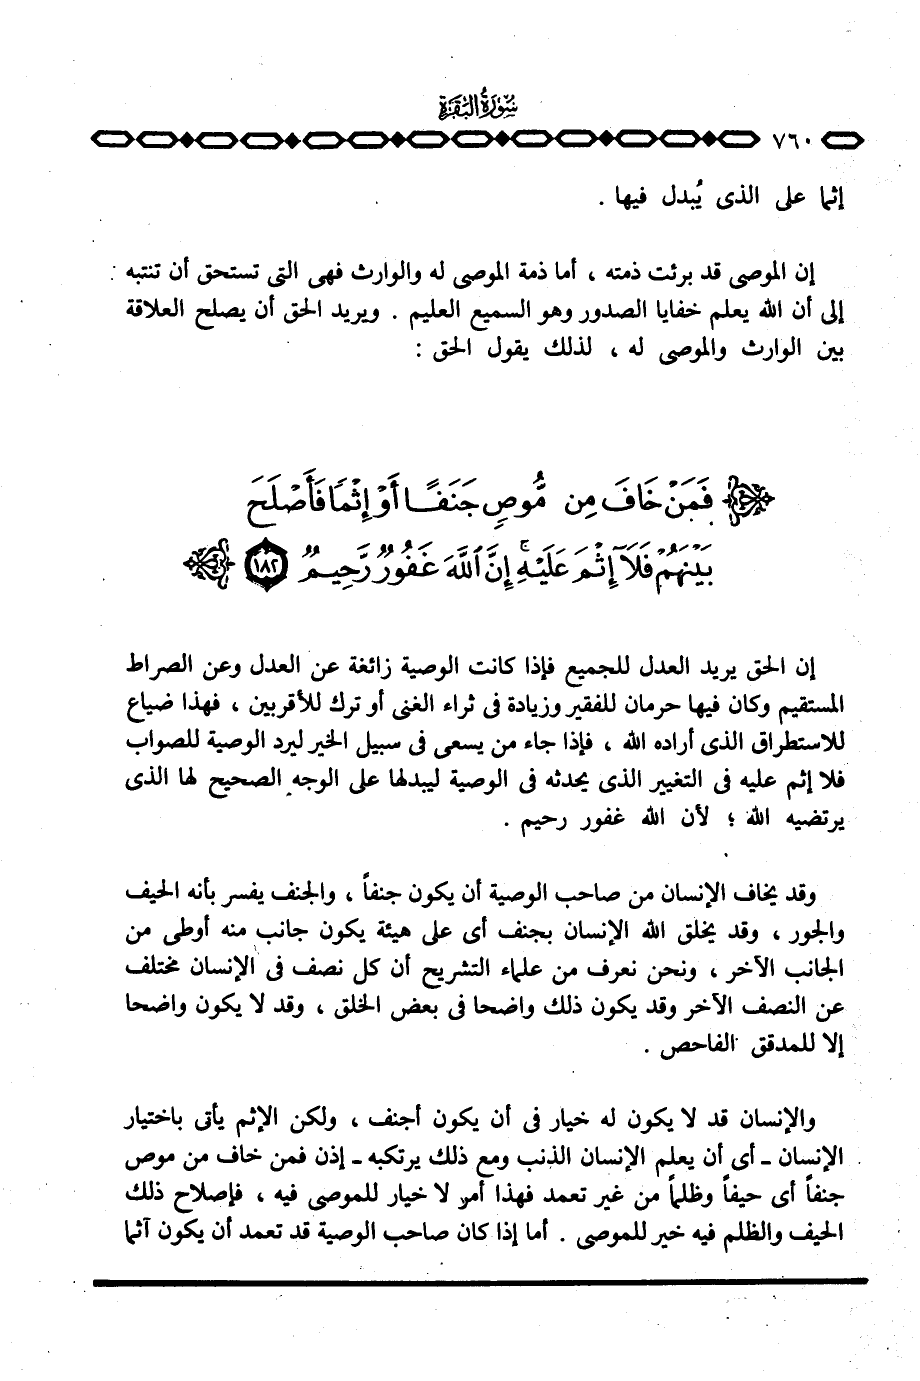 سورة البقرة
٧٦٠
إثما على الذى يُبدل فيها .
إن الموصى قد برئت ذمته ، أما ذمة الموصى له والوارث فهى التى تستحق أن تنتبه
إلى أن الله يعلم خفايا الصدور وهو السميع العليم . ويريد الحق أن يصلح العلاقة
بين الوارث والموصى له ، لذلك يقول الحق :
فَمَنْ خَافَ مِن مُّوصٍ جَنَفًا أَوْ إِثْمًا فَأَصْلَحَ
بَيْنَهُمْ فَلَآ إِثْمَ عَلَيْهِ ۚ إِنَّ ٱللَّهَ غَفُورٌ رَّحِيمٌ ١٨٢
إن الحق يريد العدل للجميع فإذا كانت الوصية زائغة عن العدل وعن الصراط
المستقيم وكان فيها حرمان للفقير وزيادة فى ثراء الغنى أو ترك للأقربين ، فهذا ضياع
للاستطراق الذى أراده الله ، فإذا جاء من يسعى فى سبيل الخير ليرد الوصية للصواب
فلا إثم عليه فى التغيير الذى يحدثه فى الوصية ليبدلها على الوجه الصحيح لها الذى
يرتضيه الله ؛ لأن الله غفور رحيم .
وقد يخاف الإنسان من صاحب الوصية أن يكون جنفاً ، والجنف يفسر بأنه الحيف
والجور ، وقد يخلق الله الإنسان بجنف أى على هيئة يكون جانب منه أوطى من
الجانب الآخر ، ونحن نعرف من علماء التشريح أن كل نصف فى الإنسان مختلف
عن النصف الآخر وقد يكون ذلك واضحا فى بعض الخلق ، وقد لا يكون واضحا
إلا للمدقق الفاحص .
والإنسان قد لا يكون له خيار فى أن يكون أجنف ، ولكن الإثم يأتى باختيار
الإنسان - أى أن يعلم الإنسان الذنب ومع ذلك يرتكبه - إذن فمن خاف من موص
جنفاً أى حيفاً وظلماً من غير تعمد فهذا أمر لا خيار للموصى فيه ، فإصلاح ذلك
الحيف والظلم فيه خير للموصى . أما إذا كان صاحب الوصية قد تعمد أن يكون آثما